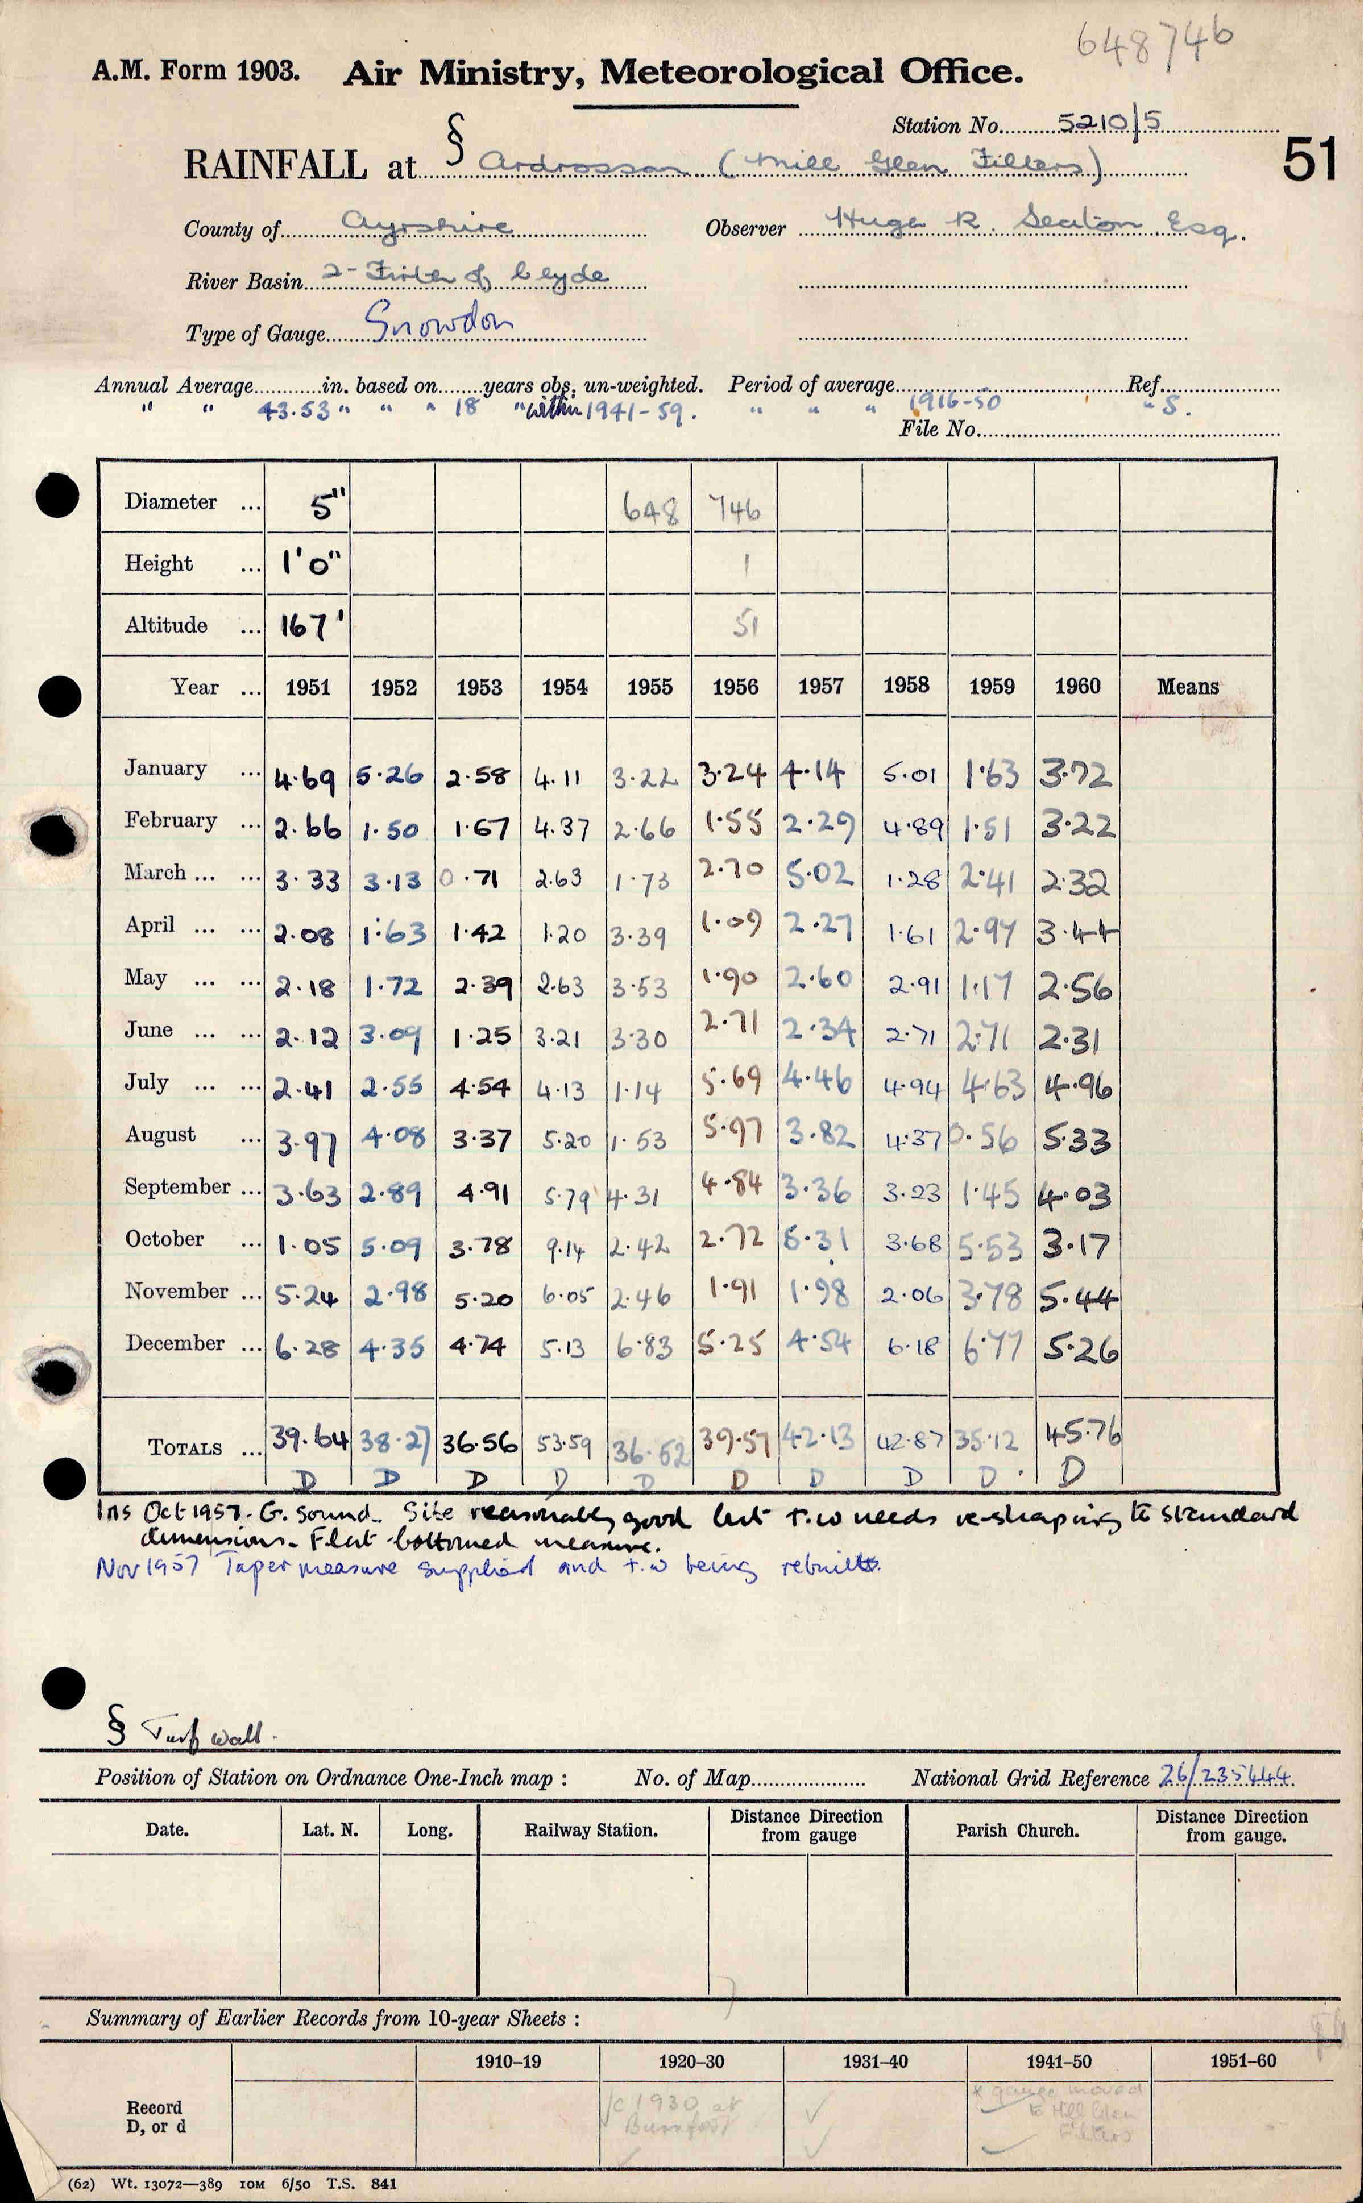 648746
A.M. Form 1903. Air Ministry, Meteorological Office.
Station No. 5210/5
RAINFALL at § Ardrossan (Mill Glen Filters) 51
County of Ayrshire Observer Hugh R. Seaton Esq.
River Basin 2- Firth of Clyde
Type of Gauge Snowdon
Annual Average in. based on years obs. un-weighted. Period of average Ref.
" " 43.53 " " " 18 " within 1941-59. " " " 1916-50 " S.
File No.
Diameter ... 5" 648 746
Height ... 1'0" 1
Altitude ... 167' 51
Year ... 1951 1952 1953 1954 1955 1956 1957 1958 1959 1960 Means
January ... 4.69 5.26 2.58 4.11 3.22 3.24 4.14 5.01 1.63 3.72
February ... 2.66 1.50 1.67 4.37 2.66 1.55 2.29 4.89 1.51 3.22
March ... ... 3.33 3.13 0.71 2.63 1.73 2.70 5.02 1.28 2.41 2.32
April ... ... 2.08 1.63 1.42 1.20 3.39 1.09 2.27 1.61 2.97 3.44
May ... ... 2.18 1.72 2.39 2.63 3.53 1.90 2.60 2.91 1.17 2.56
June ... ... 2.12 3.09 1.25 3.21 3.30 2.71 2.34 2.71 2.71 2.31
July ... ... 2.41 2.55 4.54 4.13 1.14 5.69 4.46 4.94 4.63 4.96
August ... 3.97 4.08 3.37 5.20 1.53 5.97 3.82 4.37 0.56 5.33
September ... 3.63 2.89 4.91 5.79 4.31 4.84 3.36 3.23 1.45 4.03
October ... 1.05 5.09 3.78 9.14 2.42 2.72 5.31 3.68 5.53 3.17
November ... 5.24 2.98 5.20 6.05 2.46 1.91 1.98 2.06 3.78 5.44
December ... 6.28 4.35 4.74 5.13 6.83 5.25 4.54 6.18 6.77 5.26
TOTALS ... 39.64 38.27 36.56 53.59 36.52 39.57 42.13 42.87 35.12 45.76
D D D D D D D D D. D
Ins Oct 1957. G. sound. Site reasonably good but t.w needs re-shaping to standard
dimensions. Flat-bottomed measure.
Nov 1957 Taper measure supplied and t.w being rebuilt.
§ Turf wall.
Position of Station on Ordnance One-Inch map : No. of Map National Grid Reference 26/235444.
Date. Lat. N. Long. Railway Station. Distance Direction from gauge Parish Church. Distance Direction from gauge.
Summary of Earlier Records from 10-year Sheets :
1910-19 1920-30 1931-40 1941-50 1951-60
Record
D, or d
c 1930 at
* gauge moved
to Mill Glen
Filters
(62) Wt. 13072—389 10M 6/50 T.S. 841